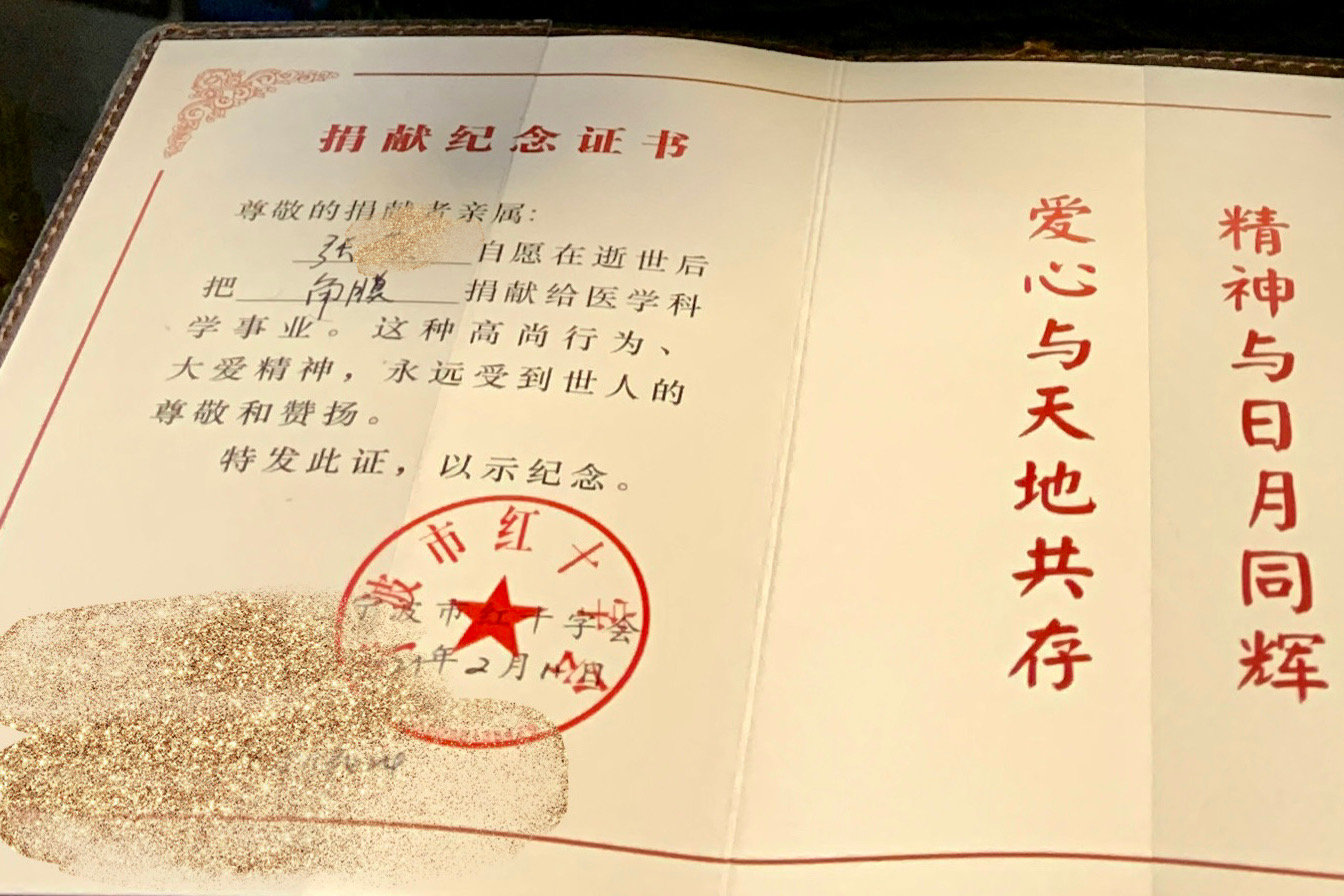 捐献纪念证书
尊敬的捐献者亲属:
张 自愿在逝世后
把 角膜 捐献给医学科
学事业。这种高尚行为、
大爱精神，永远受到世人的
尊敬和赞扬。
特发此证，以示纪念。
宁波市红十字会
年2月 日
波市红十字会
精神与日月同辉
爱心与天地共存